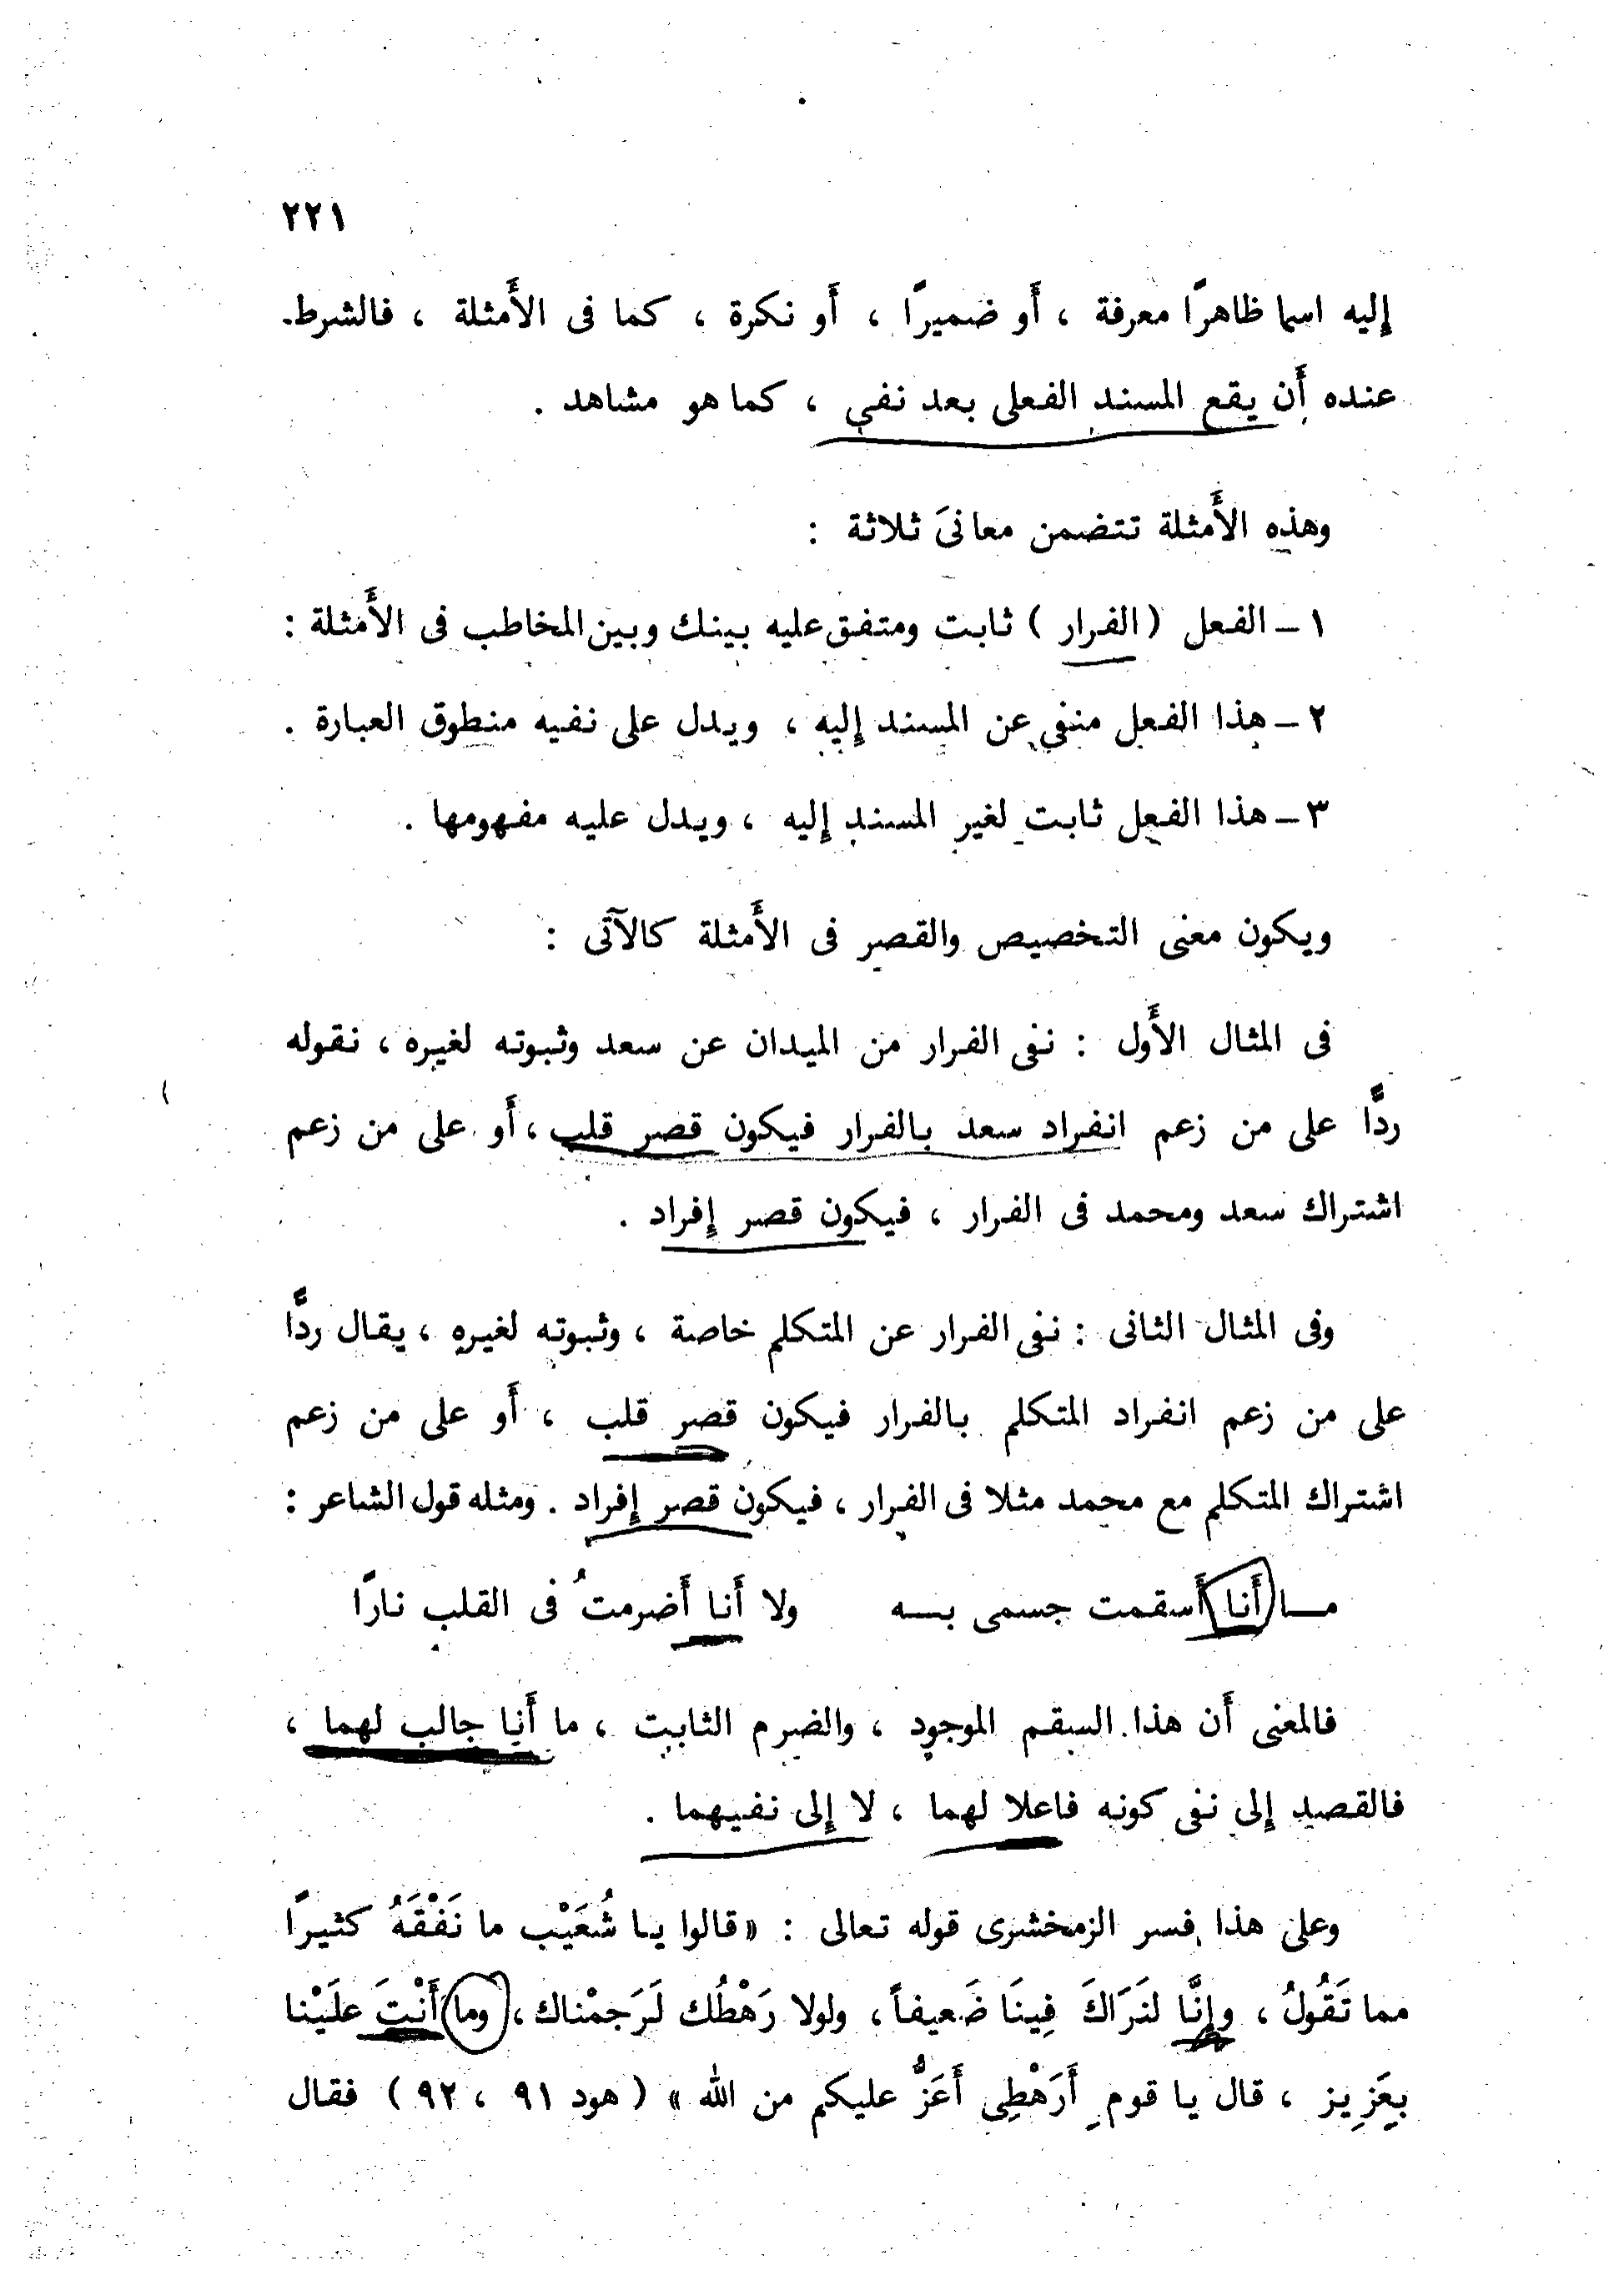 ٢٢١
إليه اسما ظاهرًا معرفة ، أَو ضميرًا ، أَو نكرة ، كما فى الأَمثلة ، فالشرط
عنده أَن يقع المسند الفعلى بعد نفى ، كما هو مشاهد .
وهذه الأَمثلة تتضمن معانىَ ثلاثة :
١ – الفعل ( الفرار ) ثابت ومتفق عليه بينك وبين المخاطب فى الأَمثلة :
٢ – هذا الفعل منفى عن المسند إليه ، ويدل على نفيه منطوق العبارة .
٣ – هذا الفعل ثابت لغير المسند إليه ، ويدل عليه مفهومها .
ويكون معنى التخصيص والقصر فى الأَمثلة كالآتى :
فى المثال الأَول : نفى الفرار من الميدان عن سعد وثبوته لغيره ، نقوله
ردًّا على من زعم انفراد سعد بالفرار فيكون قصر قلب ، أَو على من زعم
اشتراك سعد ومحمد فى الفرار ، فيكون قصر إفراد .
وفى المثال الثانى : نفى الفرار عن المتكلم خاصة ، وثبوته لغيره ، يقال ردًّا
على من زعم انفراد المتكلم بالفرار فيكون قصر قلب ، أَو على من زعم
اشتراك المتكلم مع محمد مثلا فى الفرار ، فيكون قصر إفراد . ومثله قول الشاعر :
مـا أَنا أَسقمت جسمى بـه ولا أَنا أَضرمتُ فى القلب نارًا
فالمعنى أَن هذا السقم الموجود ، والضرم الثابت ، ما أَنا جالب لهما ،
فالقصد إلى نفى كونه فاعلا لهما ، لا إلى نفيهما .
وعلى هذا فسر الزمخشرى قوله تعالى : « قالوا يا شُعَيْب ما نَفْقَهُ كثيرًا
مما تَقُولُ ، وإنَّا لنَرَاكَ فِينَا ضَعيفاً ، ولولا رَهْطُك لَرَجمْناك ، وما أَنْتَ علَيْنا
بعَزِيز ، قال يا قومِ أَرَهْطِى أَعَزُّ عليكم من الله » ( هود ٩١ ، ٩٢ ) فقال